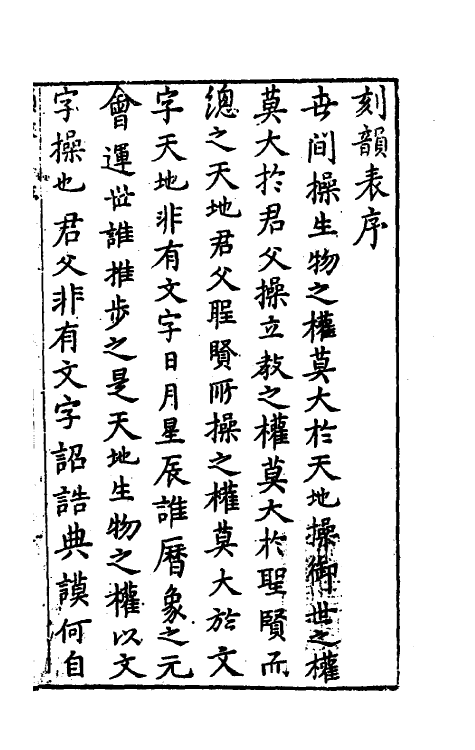 刻韻表序
世間操生物之權莫大於天地操御世之權
莫大於君父操立教之權莫大於聖賢而
總之天地君父聖賢所操之權莫大於文
字天地非有文字日月星辰誰曆象之元
會運世誰推步之是天地生物之權以文
字操也君父非有文字詔誥典謨何自